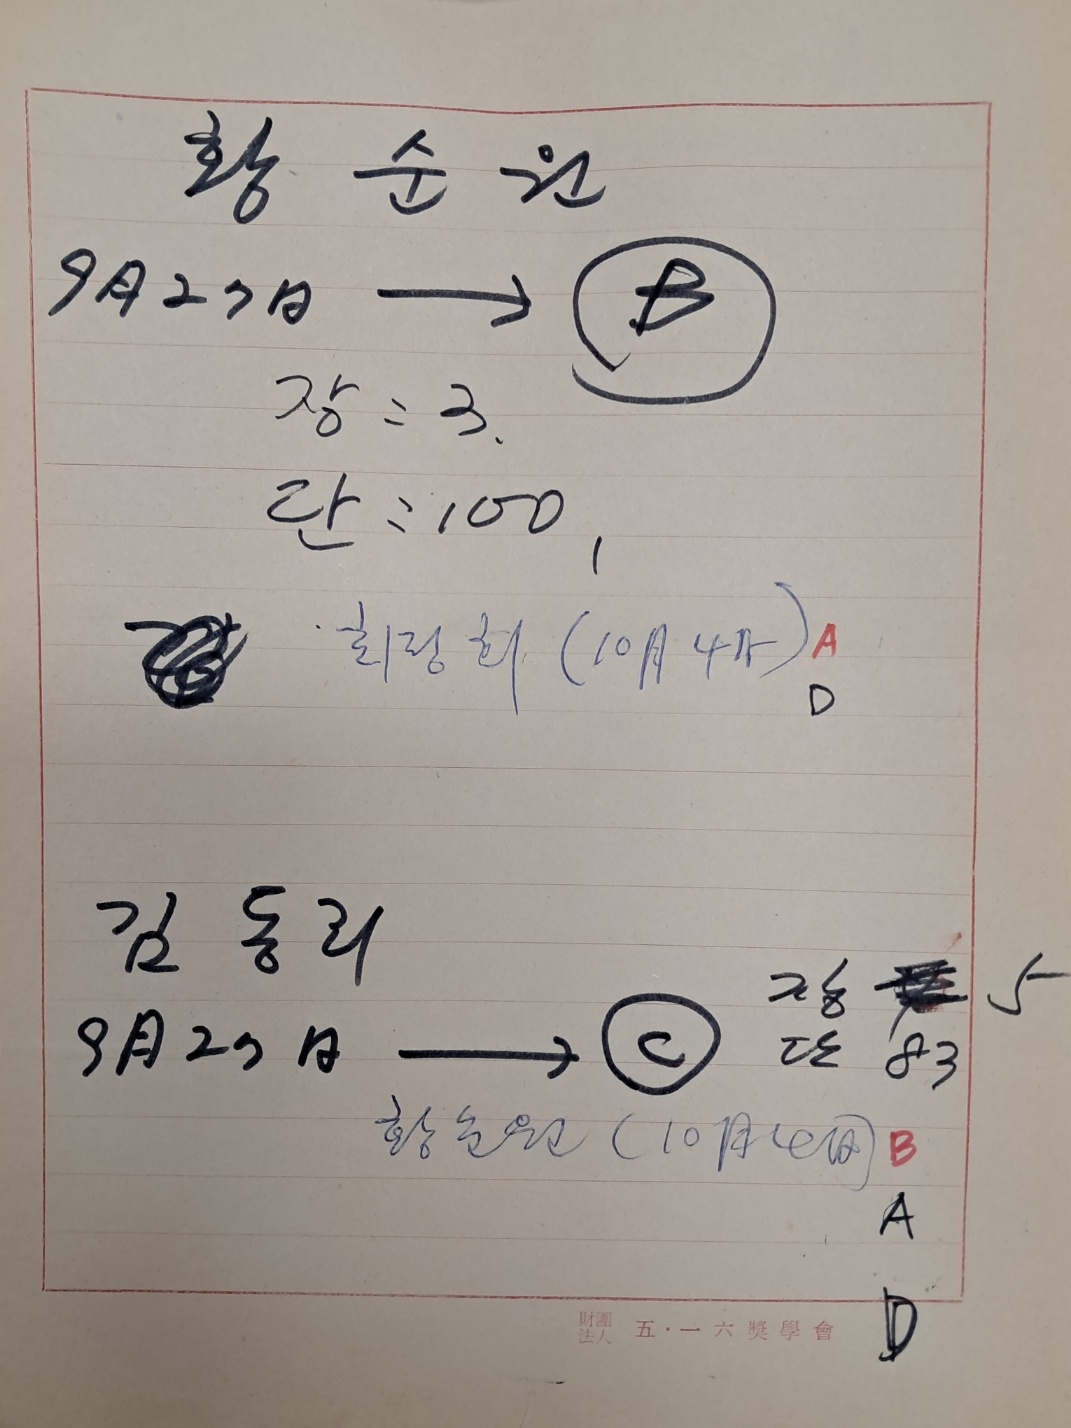 황 순 원
9月27日 → B
장 : 3.
단 : 100,
최정희 (10月4日) A
D
김 동 리
장 5
9月27日 → C 단 83
황순원 (10月4日) B
A
D
財團法人 五·一六奬學會